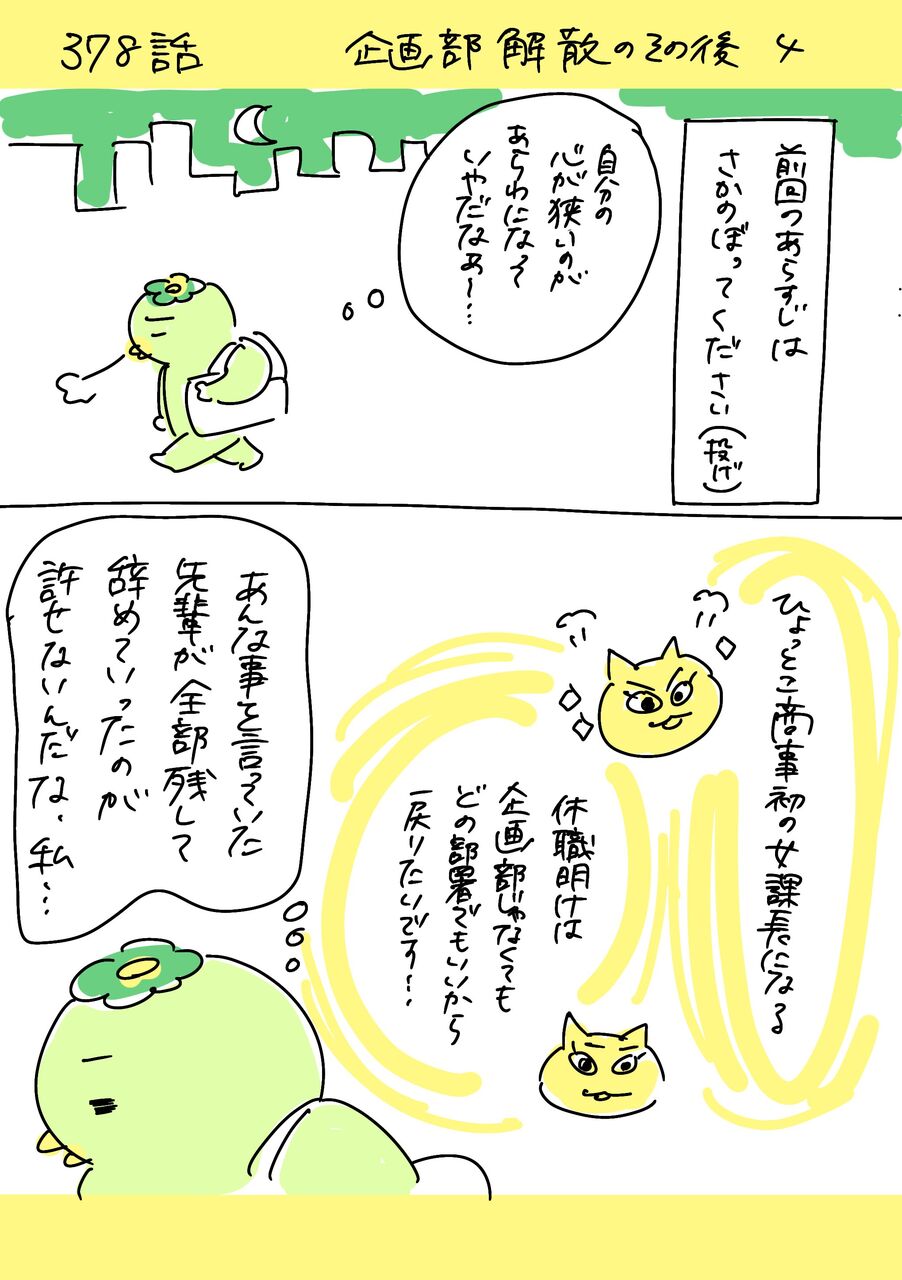 378話 企画部解散のその後 4
前回のあらすじは
さかのぼってください(投げ)
自分の
心が狭いのが
あらわになって
いやだなぁ〜…
ひょっとこ商事初の女課長になる
休職明けは
企画部じゃなくても
どの部署でもいいから
戻りたいです〜…
あんな事を言っていた
先輩が全部残して
辞めていったのが
許せないんだな、私…